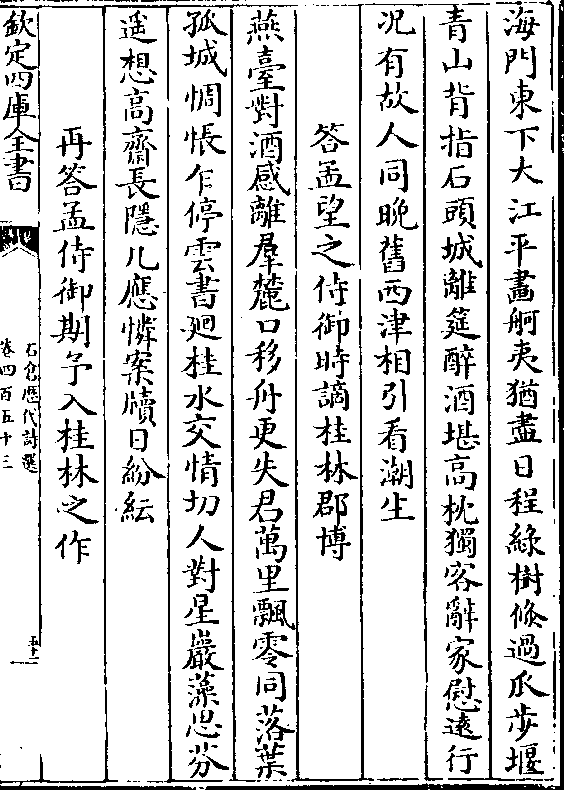 海門東下大江平畫舸夷猶盡日程綠樹倐過瓜步堰
青山背指石頭城離筵醉酒堪高枕獨客辭家慰逺行
况有故人同晩舊西津相引看潮生
答孟望之侍御時謫桂林郡博
燕臺對酒感離羣麓口移舟更失君萬里飄零同落葉
孤城惆悵乍停雲書廻桂水交情切人對星巖藻思芬
遥想高齋長隱几應憐案牘日紛紜
再答孟侍御期予入桂林之作
欽定四庫全書
石倉歴代詩選
卷四百五十三